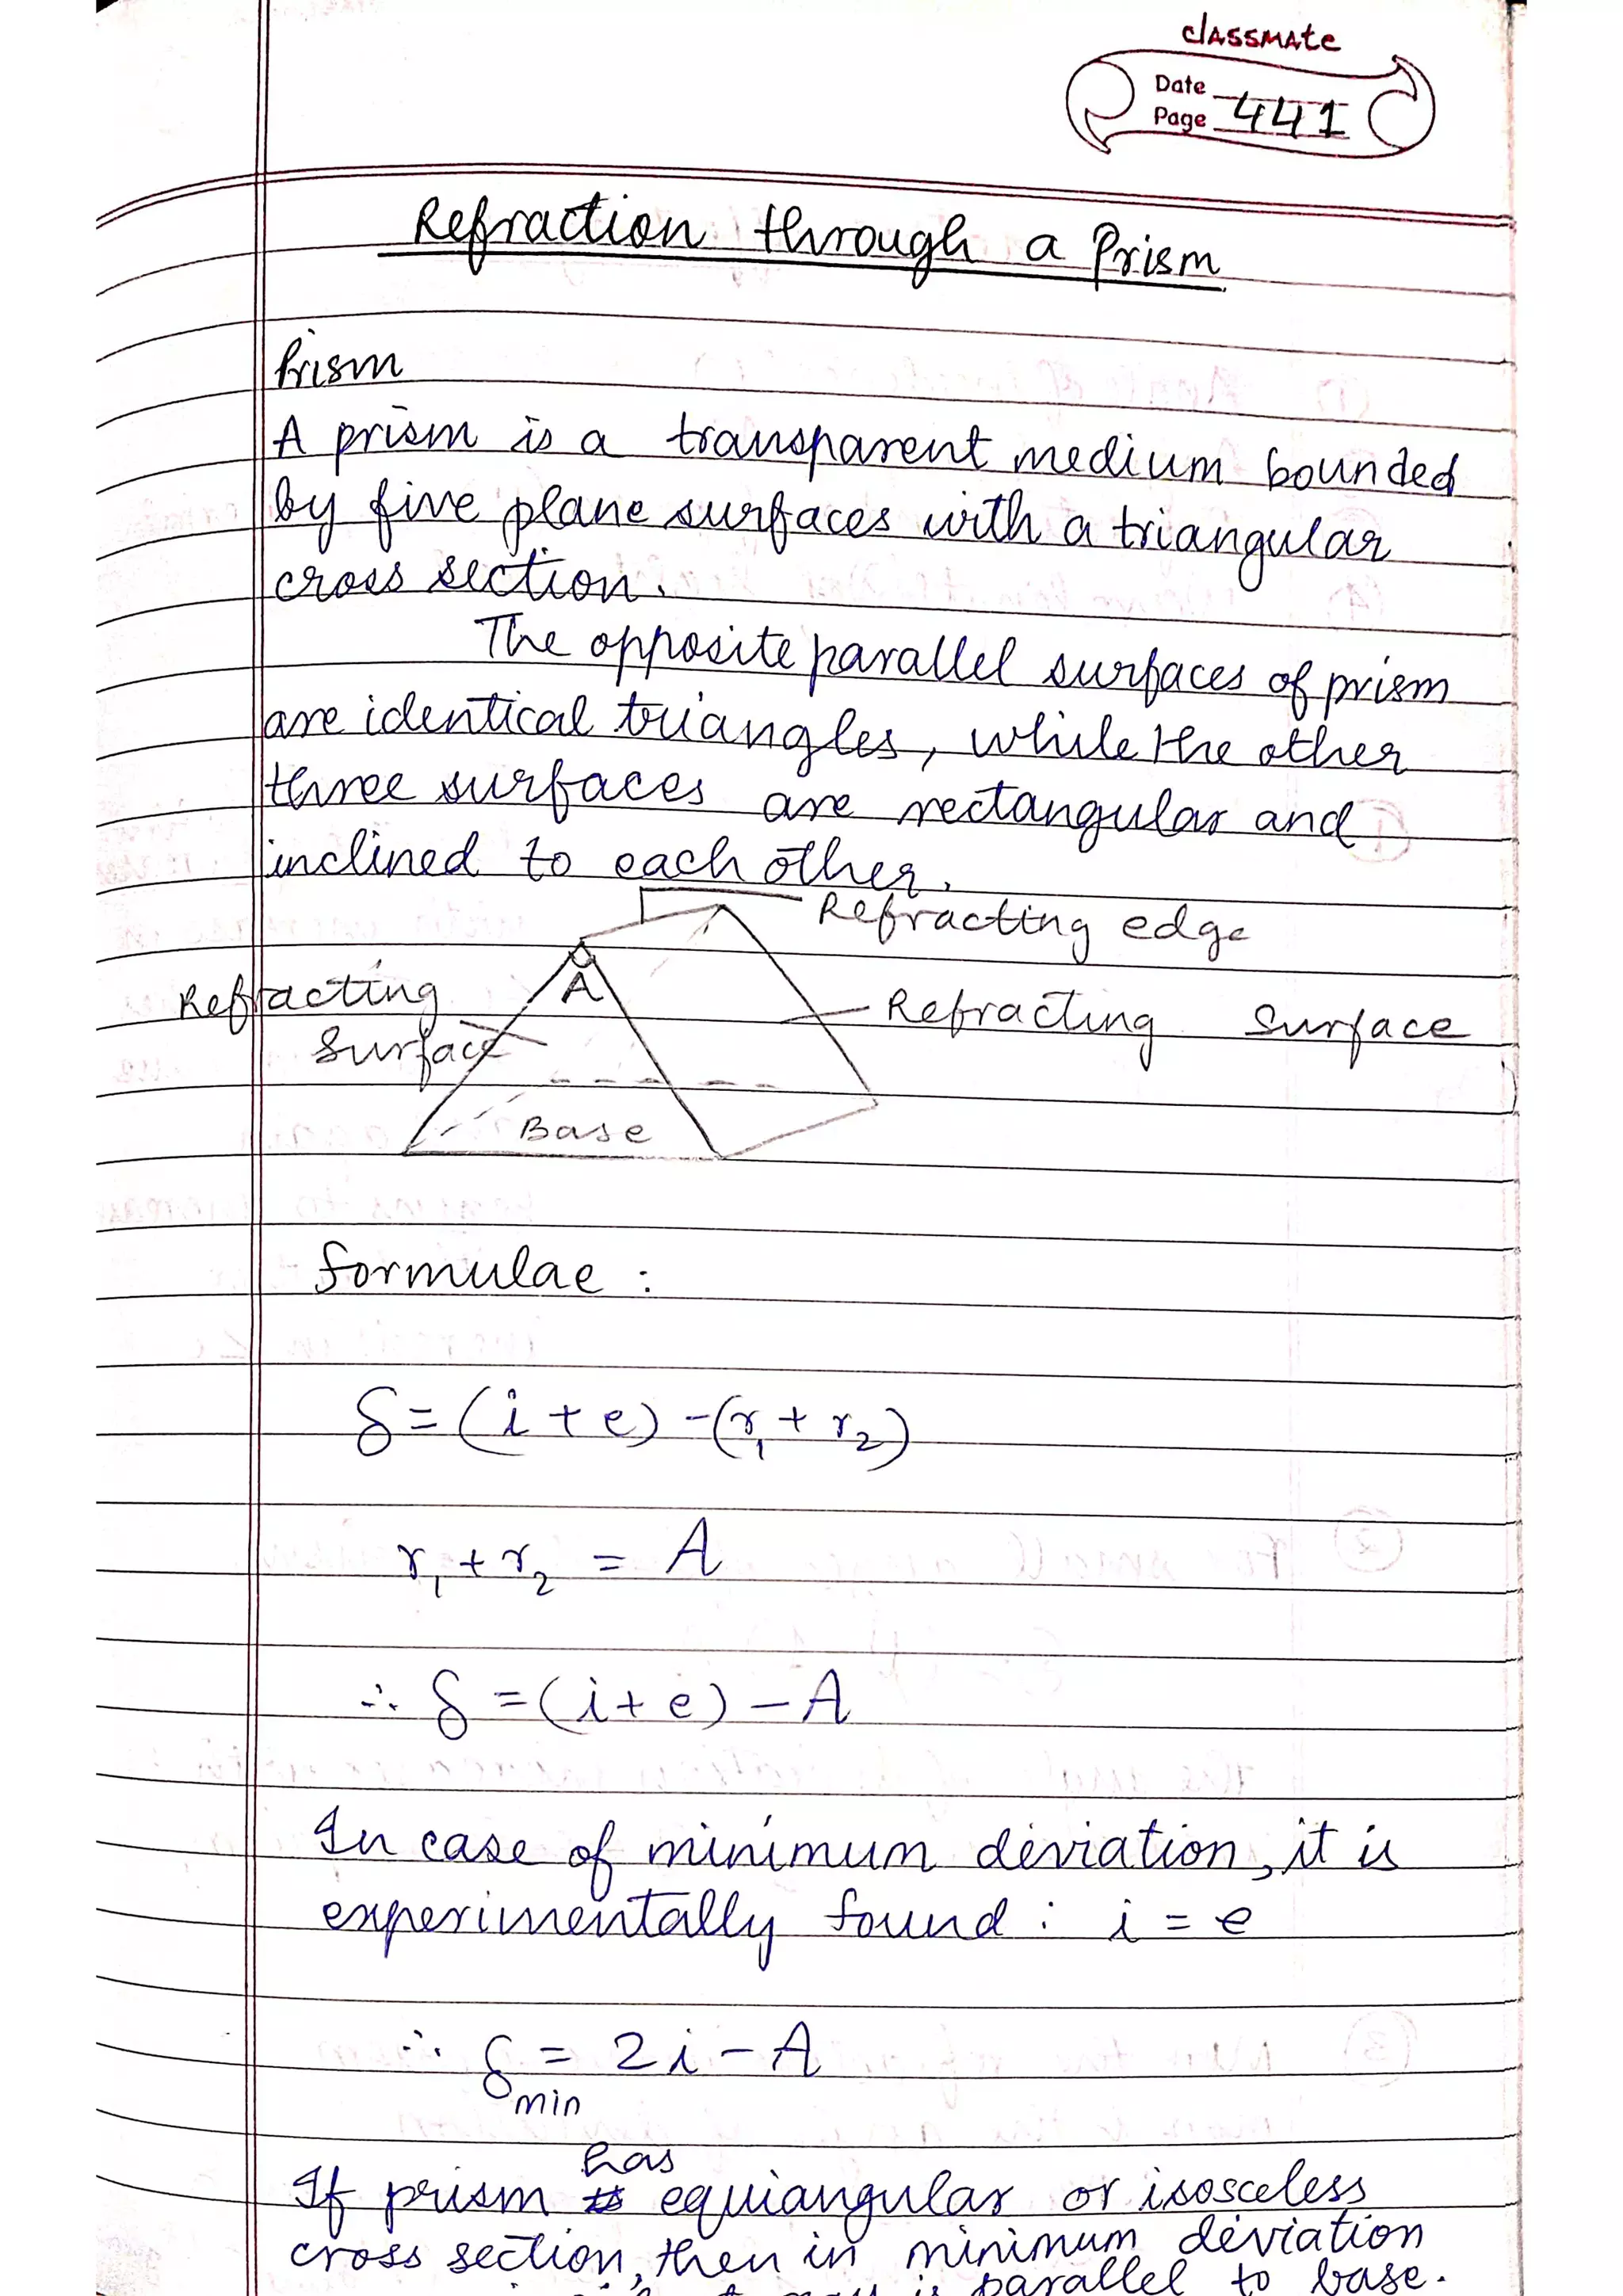 classmate
Date
Page 441
Refraction through a Prism
Prism
A prism is a transparent medium bounded
by five plane surfaces with a triangular
cross section.
The opposite parallel surfaces of prism
are identical triangles, while the other
three surfaces are rectangular and
inclined to each other.
Refracting edge
A
Refracting
Surface
Refracting Surface
Base
formulae :
δ = (i + e) - (r₁ + r₂)
r₁ + r₂ = A
∴ δ = (i + e) - A
In case of minimum deviation, it is
experimentally found : i = e
∴ δmin = 2i - A
If prism has equiangular or isosceless
cross section, then in minimum deviation
is parallel to base.